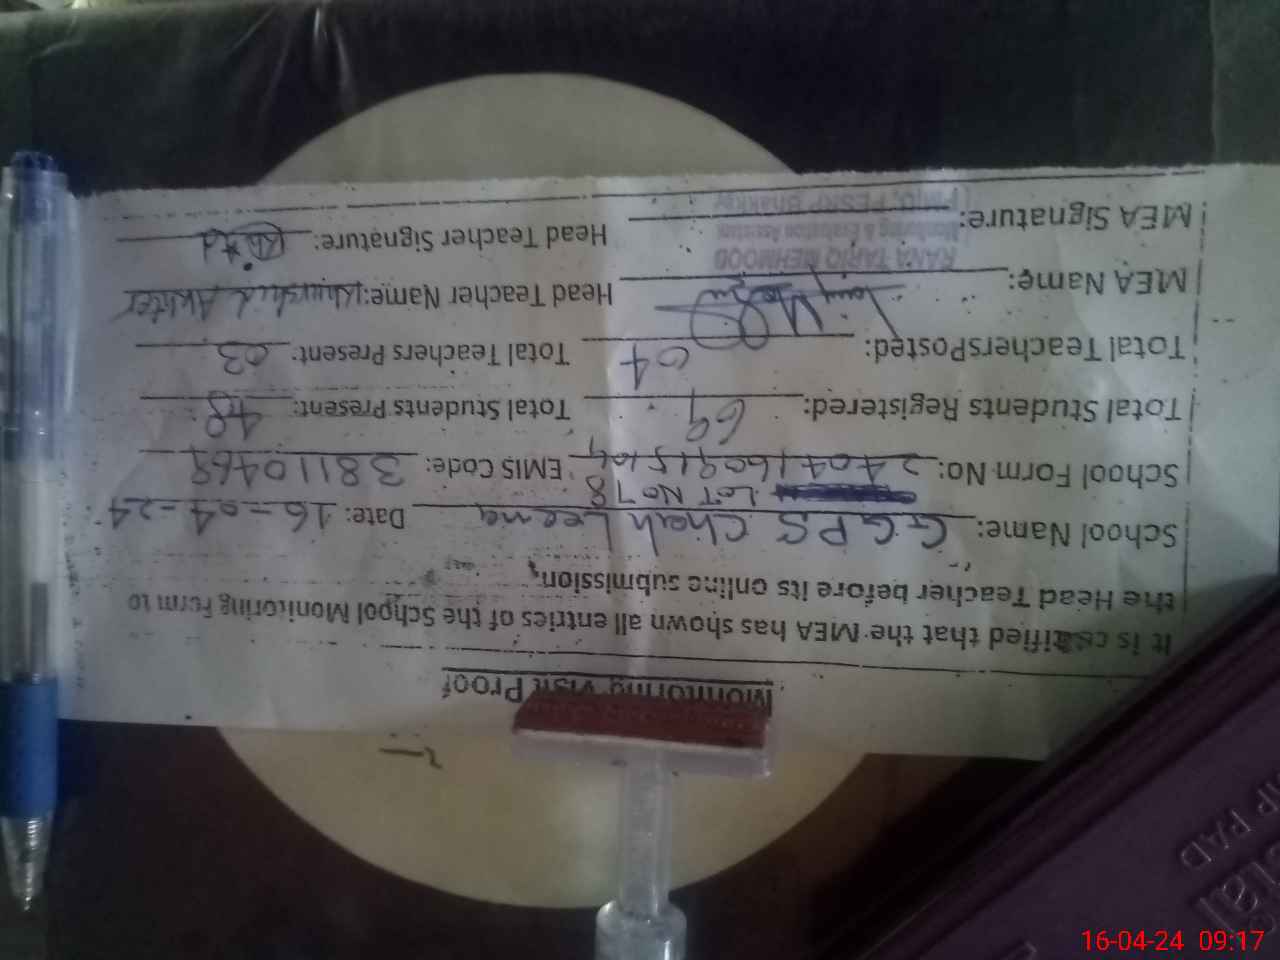 Monitoring Visit Proof
It is certified that the MEA has shown all entries of the School Monitoring Form to
the Head Teacher before its online submission.
School Name: G.G.P.S Chah Leena Date: 16-04-24
LOT No 78
School Form No: 240416091510 EMIS Code: 38110469
Total Students Registered: 69 Total Students Present: 48
Total TeachersPosted: 04 Total Teachers Present: 03
MEA Name: Head Teacher Name: Khurshid Akhter
RANA TARIQ MEHMOOD
Monitoring & Evaluation Assistant
MEA Signature: Head Teacher Signature:
PMIU, PESRP Bhakkar
MP PAD
16-04-24 09:17